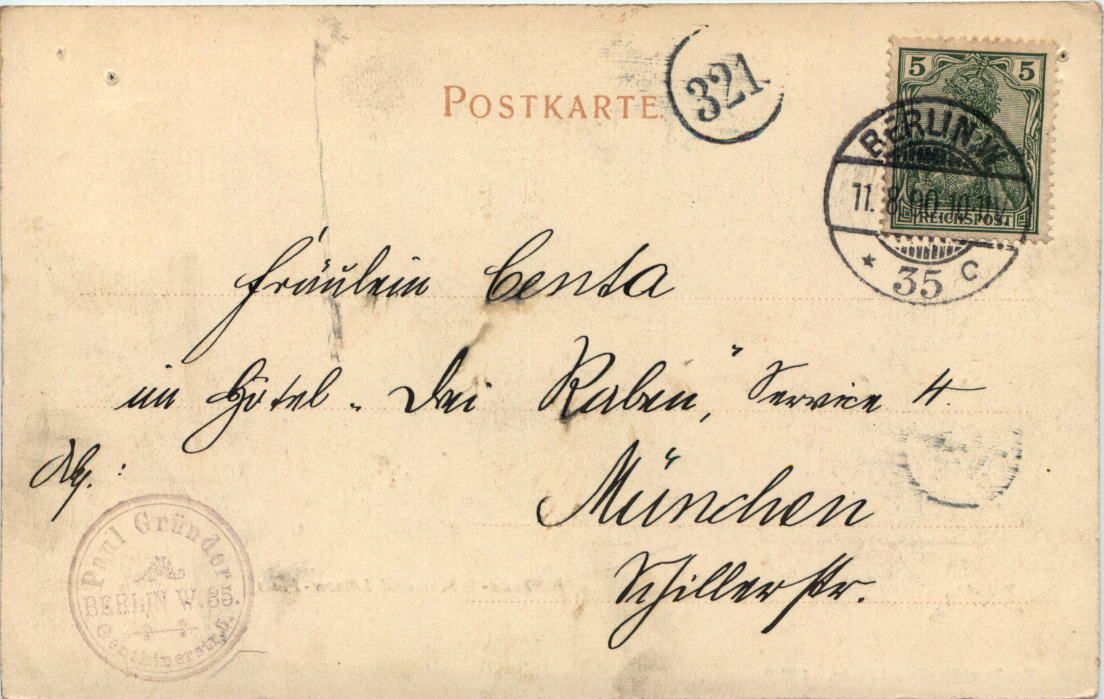 POSTKARTE.
321
5 5
REICHSPOST
BERLIN.W.
11.8.00.10
* 35 c
Fräulein Centa
im Hotel „Drei Raben“, Service 4.
München
Schillerstr.
Abs.:
Paul Gründer
BERLIN W. 35.
Genthinerstr. 5.